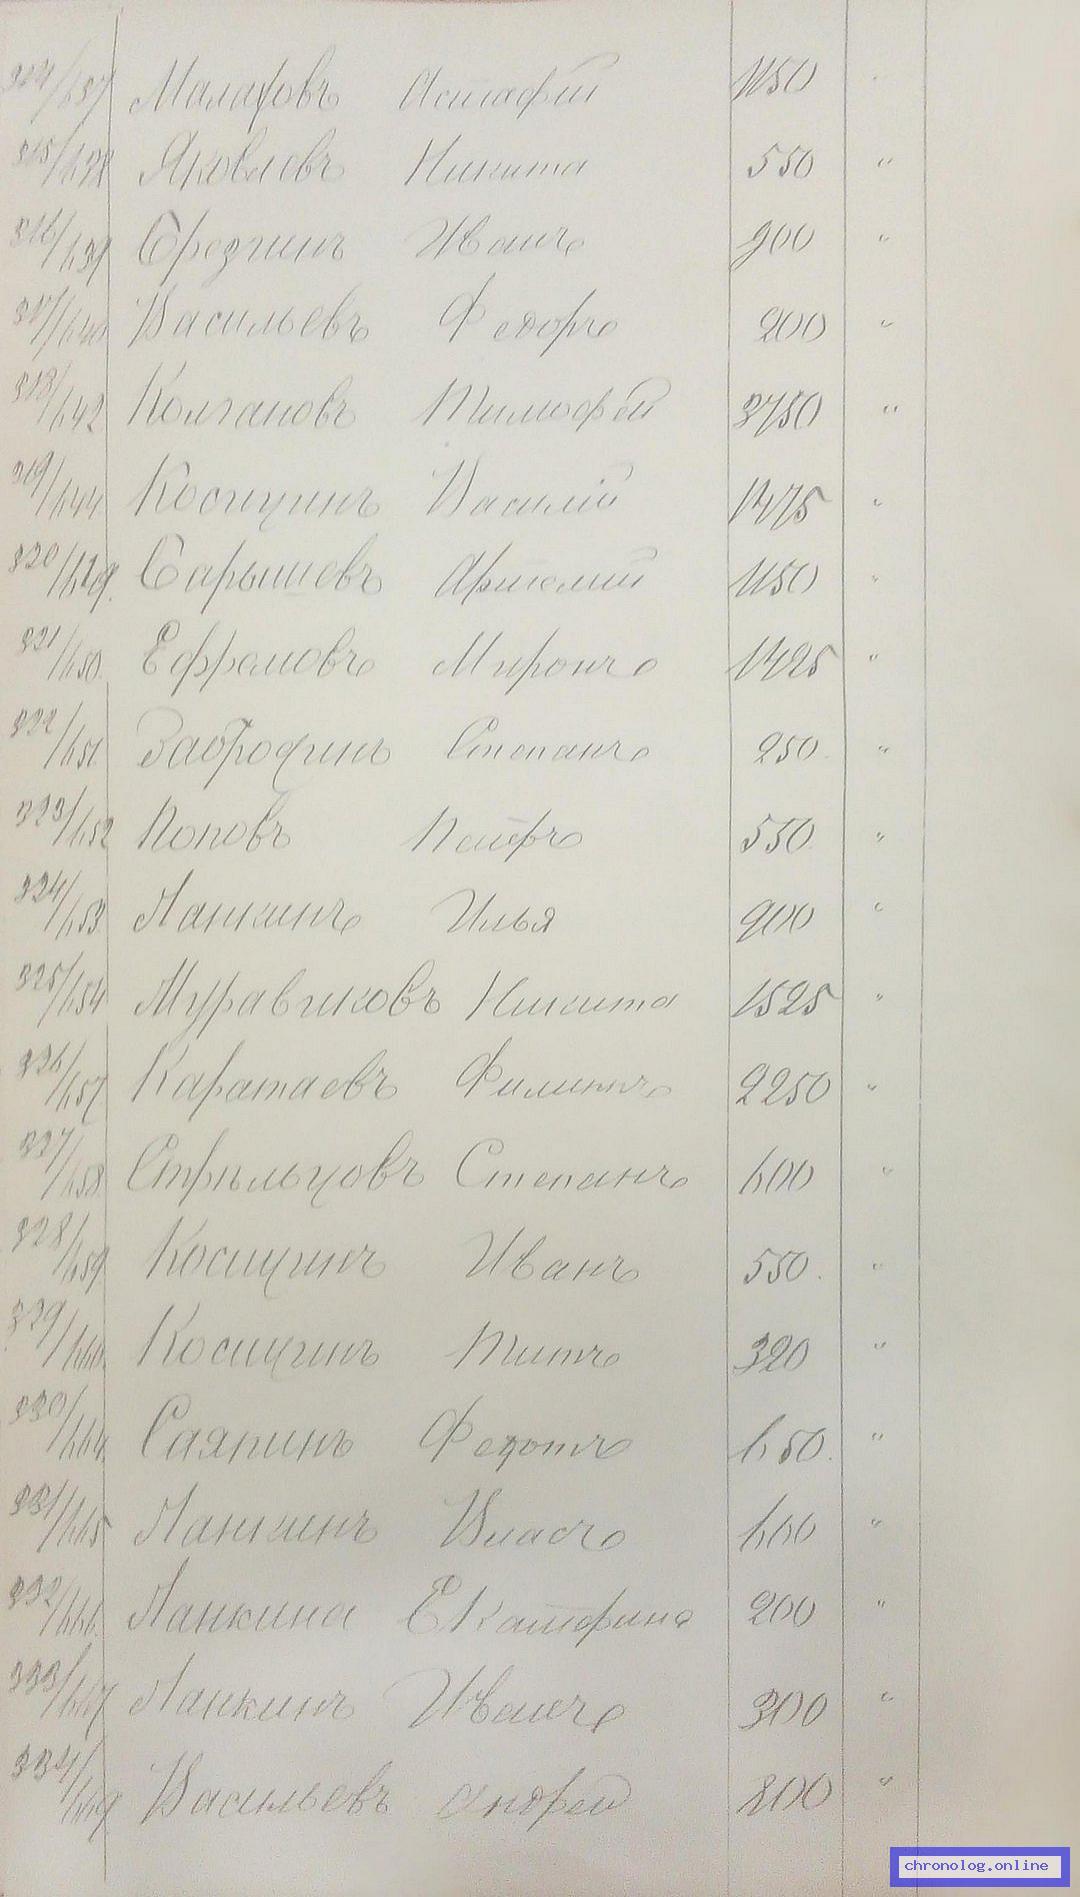 314/637 Малаховъ Астафій 1150
315/638 Яковлевъ Никита 550 "
316/639 Срезгинъ Иванъ 900 "
317/640 Васильевъ Федоръ 200 "
318/642 Колгановъ Тимофей 3750 "
319/644 Косицинъ Василій 1475 "
320/649. Сарышевъ Артемій 1150 "
321/650. Ефремовъ Миронъ 1425 "
322/651 Забродинъ Степанъ 250. "
323/652 Поповъ Петръ 550. "
324/653. Панкинъ Илья 900 "
325/654 Муравиковъ Никита 1525 "
326/657 Каратаевъ Филиппъ 2250 "
327/658. Стрѣльцовъ Степанъ 600 "
328/659 Косицинъ Иванъ 550. "
329/660. Косицинъ Титъ 320 "
330/664. Саяпинъ Федотъ 650. "
331/665 Панкинъ Власъ 600 "
332/666. Панкина Екатерина 200 "
333/667 Панкинъ Иванъ 300 "
334/669 Васильевъ Андрей 200 "
chronolog.online